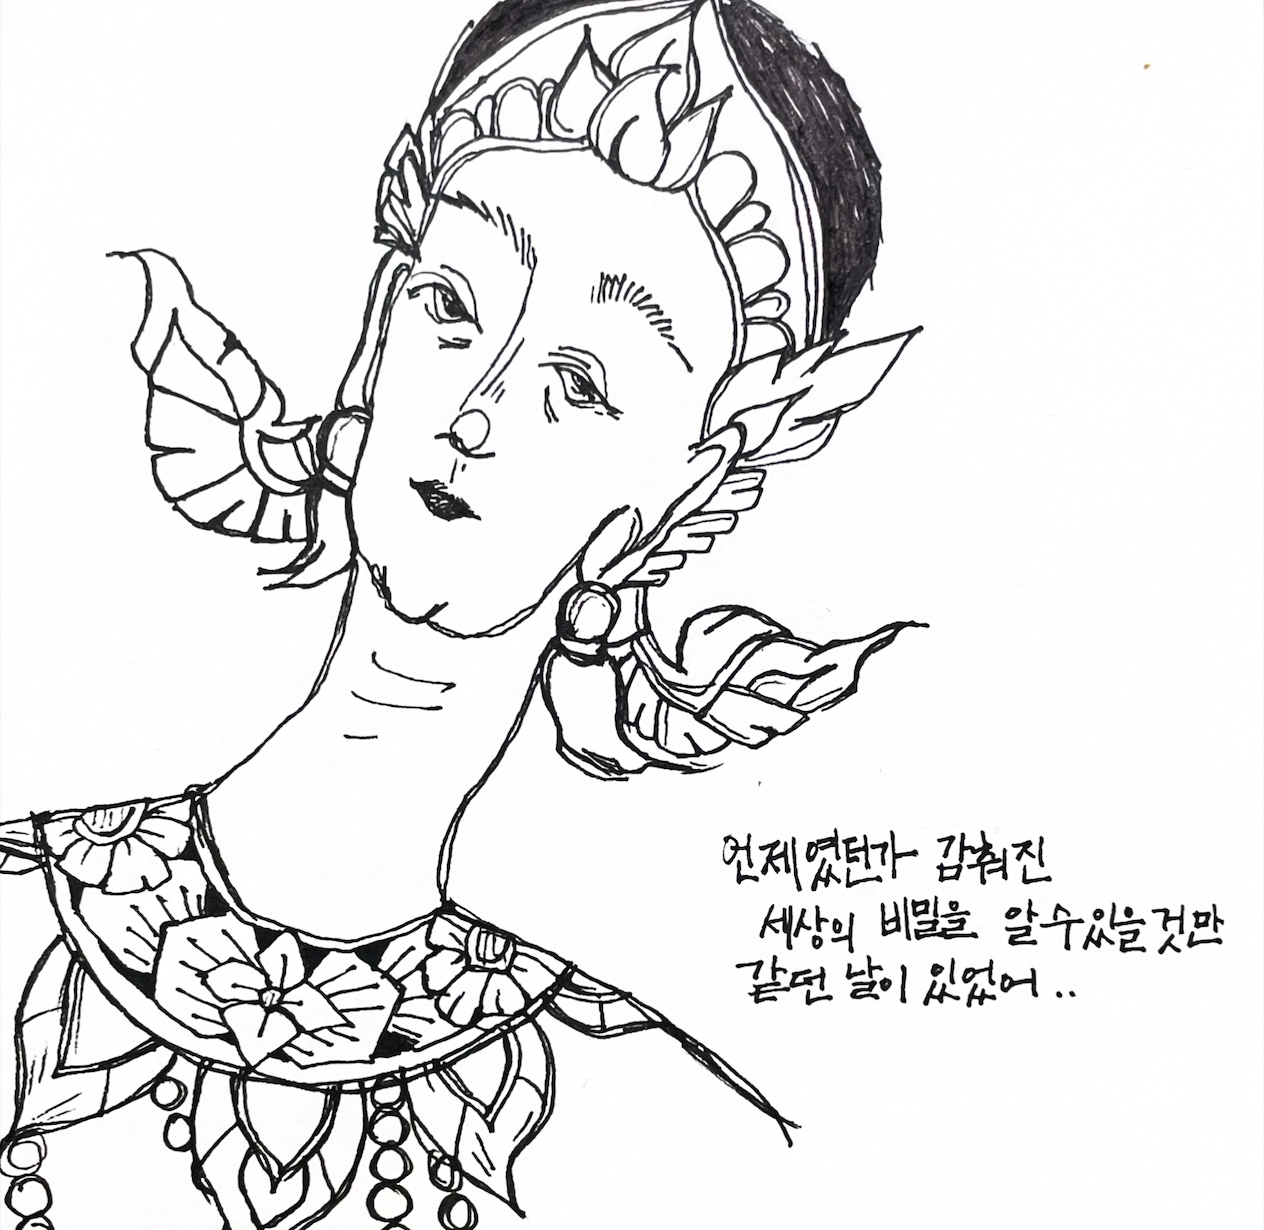 언제였던가 감춰진
세상의 비밀을 알 수 있을 것만
같던 날이 있었어..